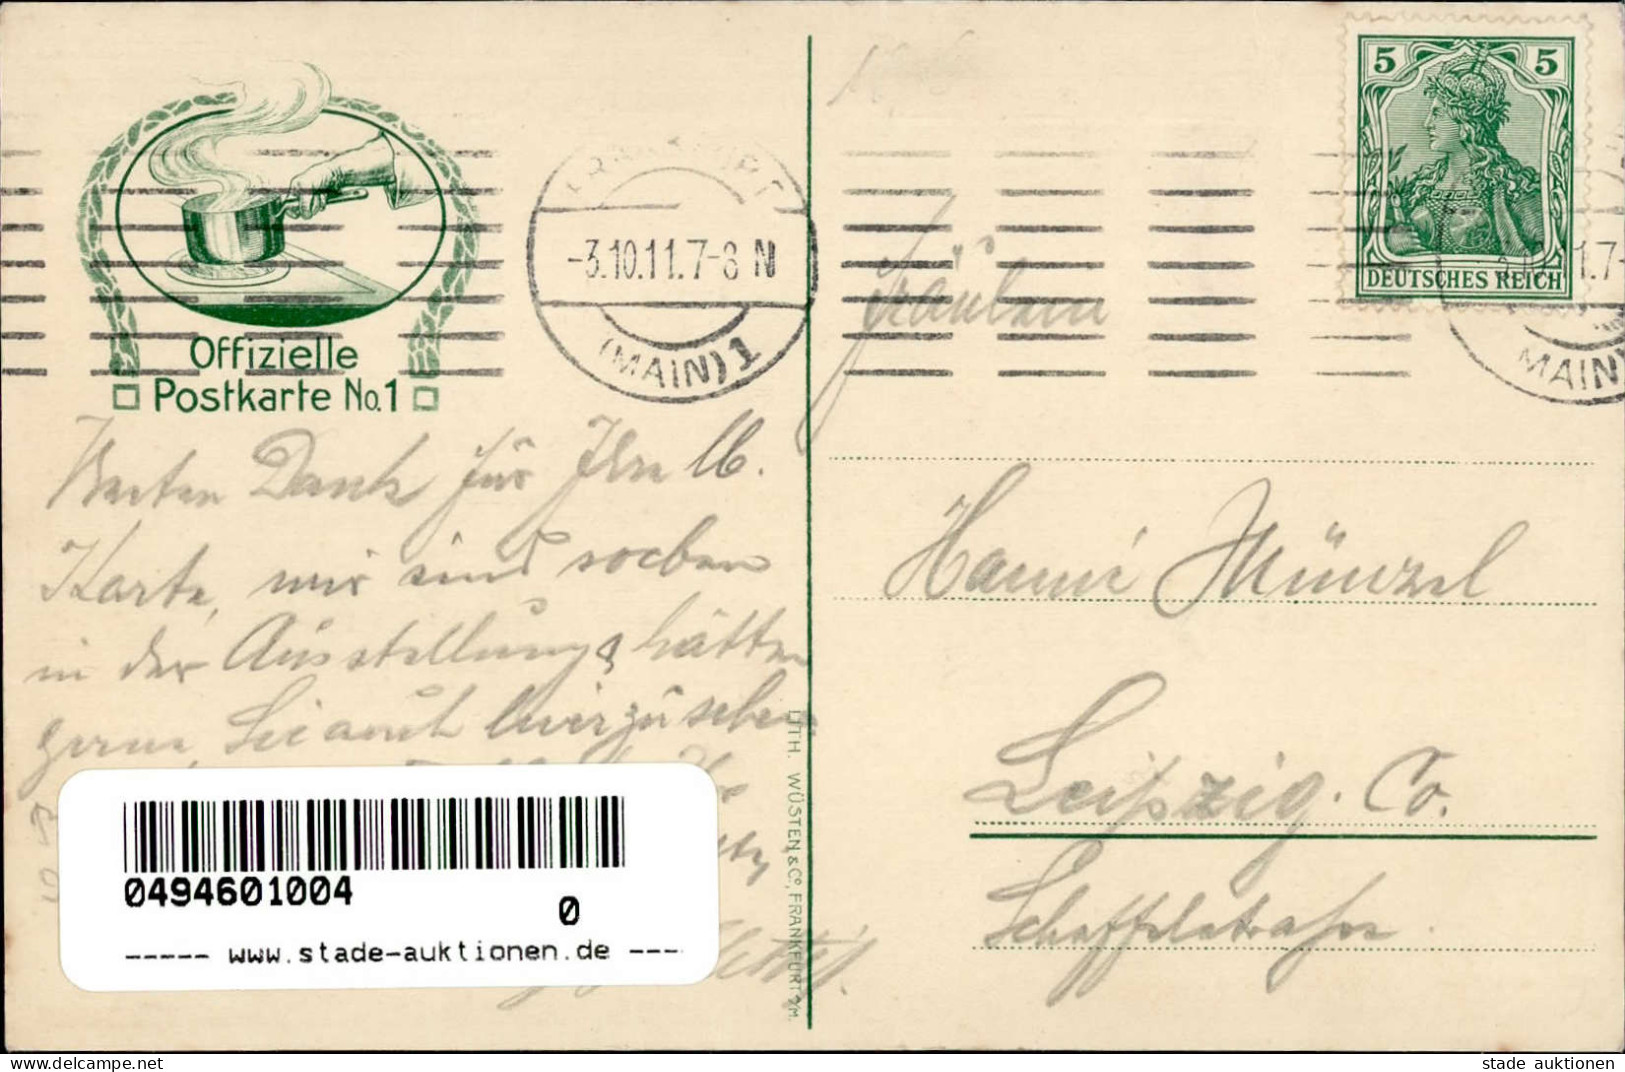 Offizielle
Postkarte No. 1
FRANKFURT
-3.10.11.7-8 N
(MAIN) 1
5 5
DEUTSCHES REICH
1.7-
MAIN)
Besten Dank für Ihre lb.
Karte, wir sind soeben
in der Ausstellung & hätten
gerne, Sie auch hierzusehen
Fräulein
Hanni Münzel
Leipzig. Co.
Scheffelstraße.
LITH. WÜSTEN & Co., FRANKFURT a/M.
0494601004
0
----- www.stade-auktionen.de ---
www.delcampe.net
stade auktionen